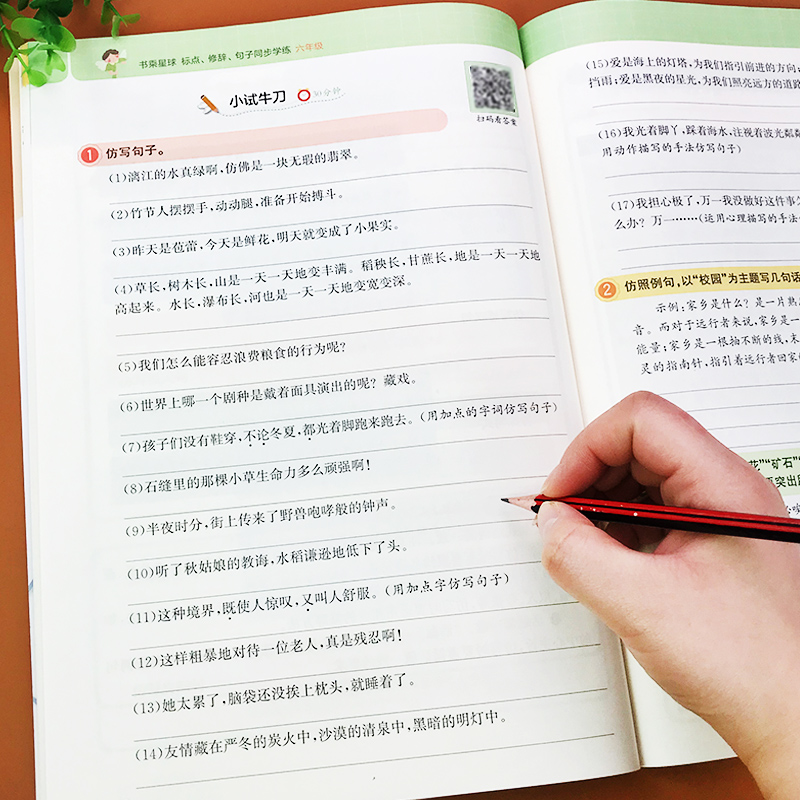 书乘星球 标点、修辞、句子同步学练 六年级
小试牛刀 30分钟
扫码看答案
1 仿写句子。
(1)漓江的水真绿啊,仿佛是一块无瑕的翡翠。
(2)竹节人摆摆手,动动腿,准备开始搏斗。
(3)昨天是苞蕾,今天是鲜花,明天就变成了小果实。
(4)草长,树木长,山是一天一天地变丰满。稻秧长,甘蔗长,地是一天一天地
高起来。水长,瀑布长,河也是一天一天地变宽变深。
(5)我们怎么能容忍浪费粮食的行为呢?
(6)世界上哪一个剧种是戴着面具演出的呢?藏戏。
(7)孩子们没有鞋穿,不论冬夏,都光着脚跑来跑去。(用加点的字词仿写句子)
(8)石缝里的那棵小草生命力多么顽强啊!
(9)半夜时分,街上传来了野兽咆哮般的钟声。
(10)听了秋姑娘的教海,水稻谦逊地低下了头。
(11)这种境界,既使人惊叹,又叫人舒服。(用加点字仿写句子)
(12)这样粗暴地对待一位老人,真是残忍啊!
(13)她太累了,脑袋还没挨上枕头,就睡着了。
(14)友情藏在严冬的炭火中,沙漠的清泉中,黑暗的明灯中。
(15)爱是海上的灯塔,为我们指引前进的方向;
挡雨;爱是黑夜的星光,为我们照亮远方的道路
(16)我光着脚丫,踩着海水,注视着波光粼粼
用动作描写的手法仿写句子)
(17)我担心极了,万一我没做好这件事怎
么办?万一……(运用心理描写的手法
2 仿照例句,以“校园”为主题写几句话
示例:家乡是什么?是一片热
音。而对于远行者来说,家乡是一
能量;家乡是一根抽不断的线,末
灵的指南针,指引着远行者回家
花”“矿石”
突出